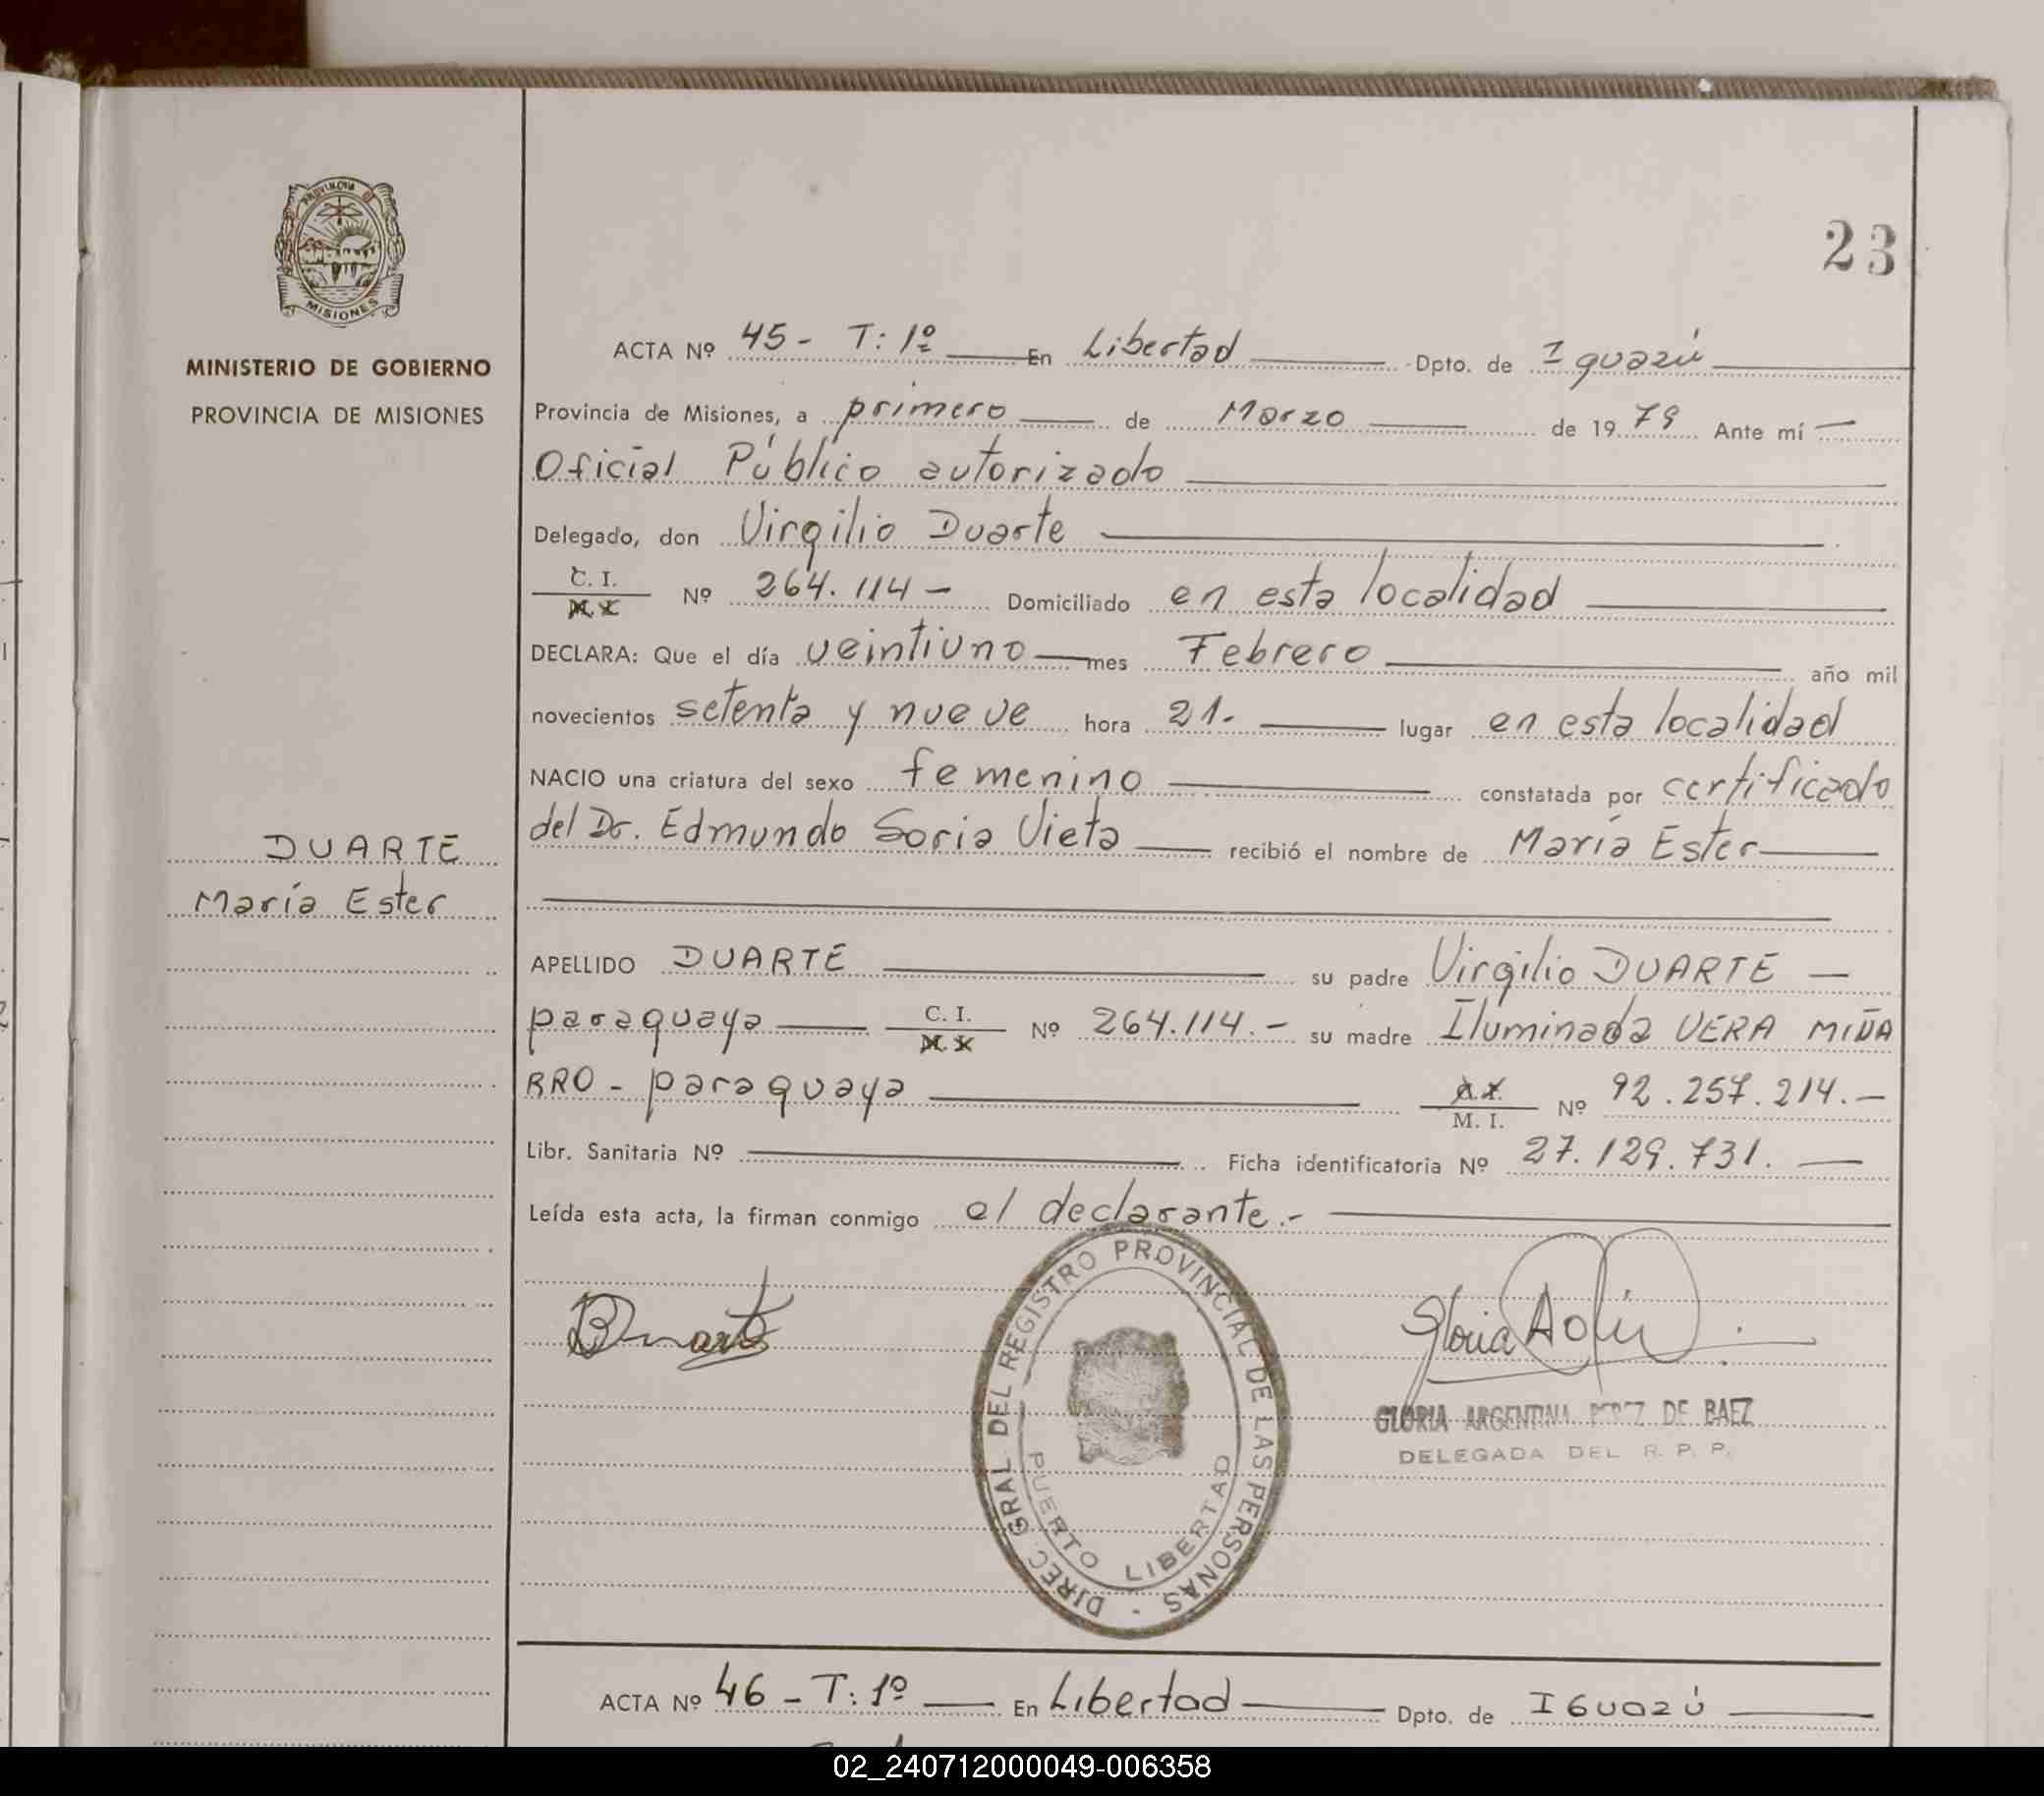 PROVINCIA
MISIONES
MINISTERIO DE GOBIERNO
PROVINCIA DE MISIONES
DUARTE
María Ester
23
ACTA Nº 45 - T: 1º En Libertad Dpto. de Iguazú
Provincia de Misiones, a primero de Marzo de 1979 Ante mí
Oficial Público autorizado
Delegado, don Virgilio Duarte
C. I. Nº 264.114 - Domiciliado en esta localidad
DECLARA: Que el día veintiuno mes Febrero año mil
novecientos setenta y nueve hora 21. lugar en esta localidad
NACIO una criatura del sexo femenino constatada por certificado
del Dr. Edmundo Soria Vieta recibió el nombre de María Ester
APELLIDO DUARTE su padre Virgilio DUARTE
paraguaya C. I. Nº 264.114.- su madre Iluminada VERA MIÑA
RRO - paraguaya M. I. Nº 92.257.214.-
Libr. Sanitaria Nº Ficha identificatoria Nº 27.129.731.
Leída esta acta, la firman conmigo el declarante.-
DIREC. GRAL DEL REGISTRO PROVINCIAL DE LAS PERSONAS -
PUERTO LIBERTAD
Gloria
GLORIA ARGENTINA PEREZ DE BAEZ
DELEGADA DEL R. P. P.
ACTA Nº 46 - T: 1º En Libertad Dpto. de IGUAZÚ
02_240712000049-006358